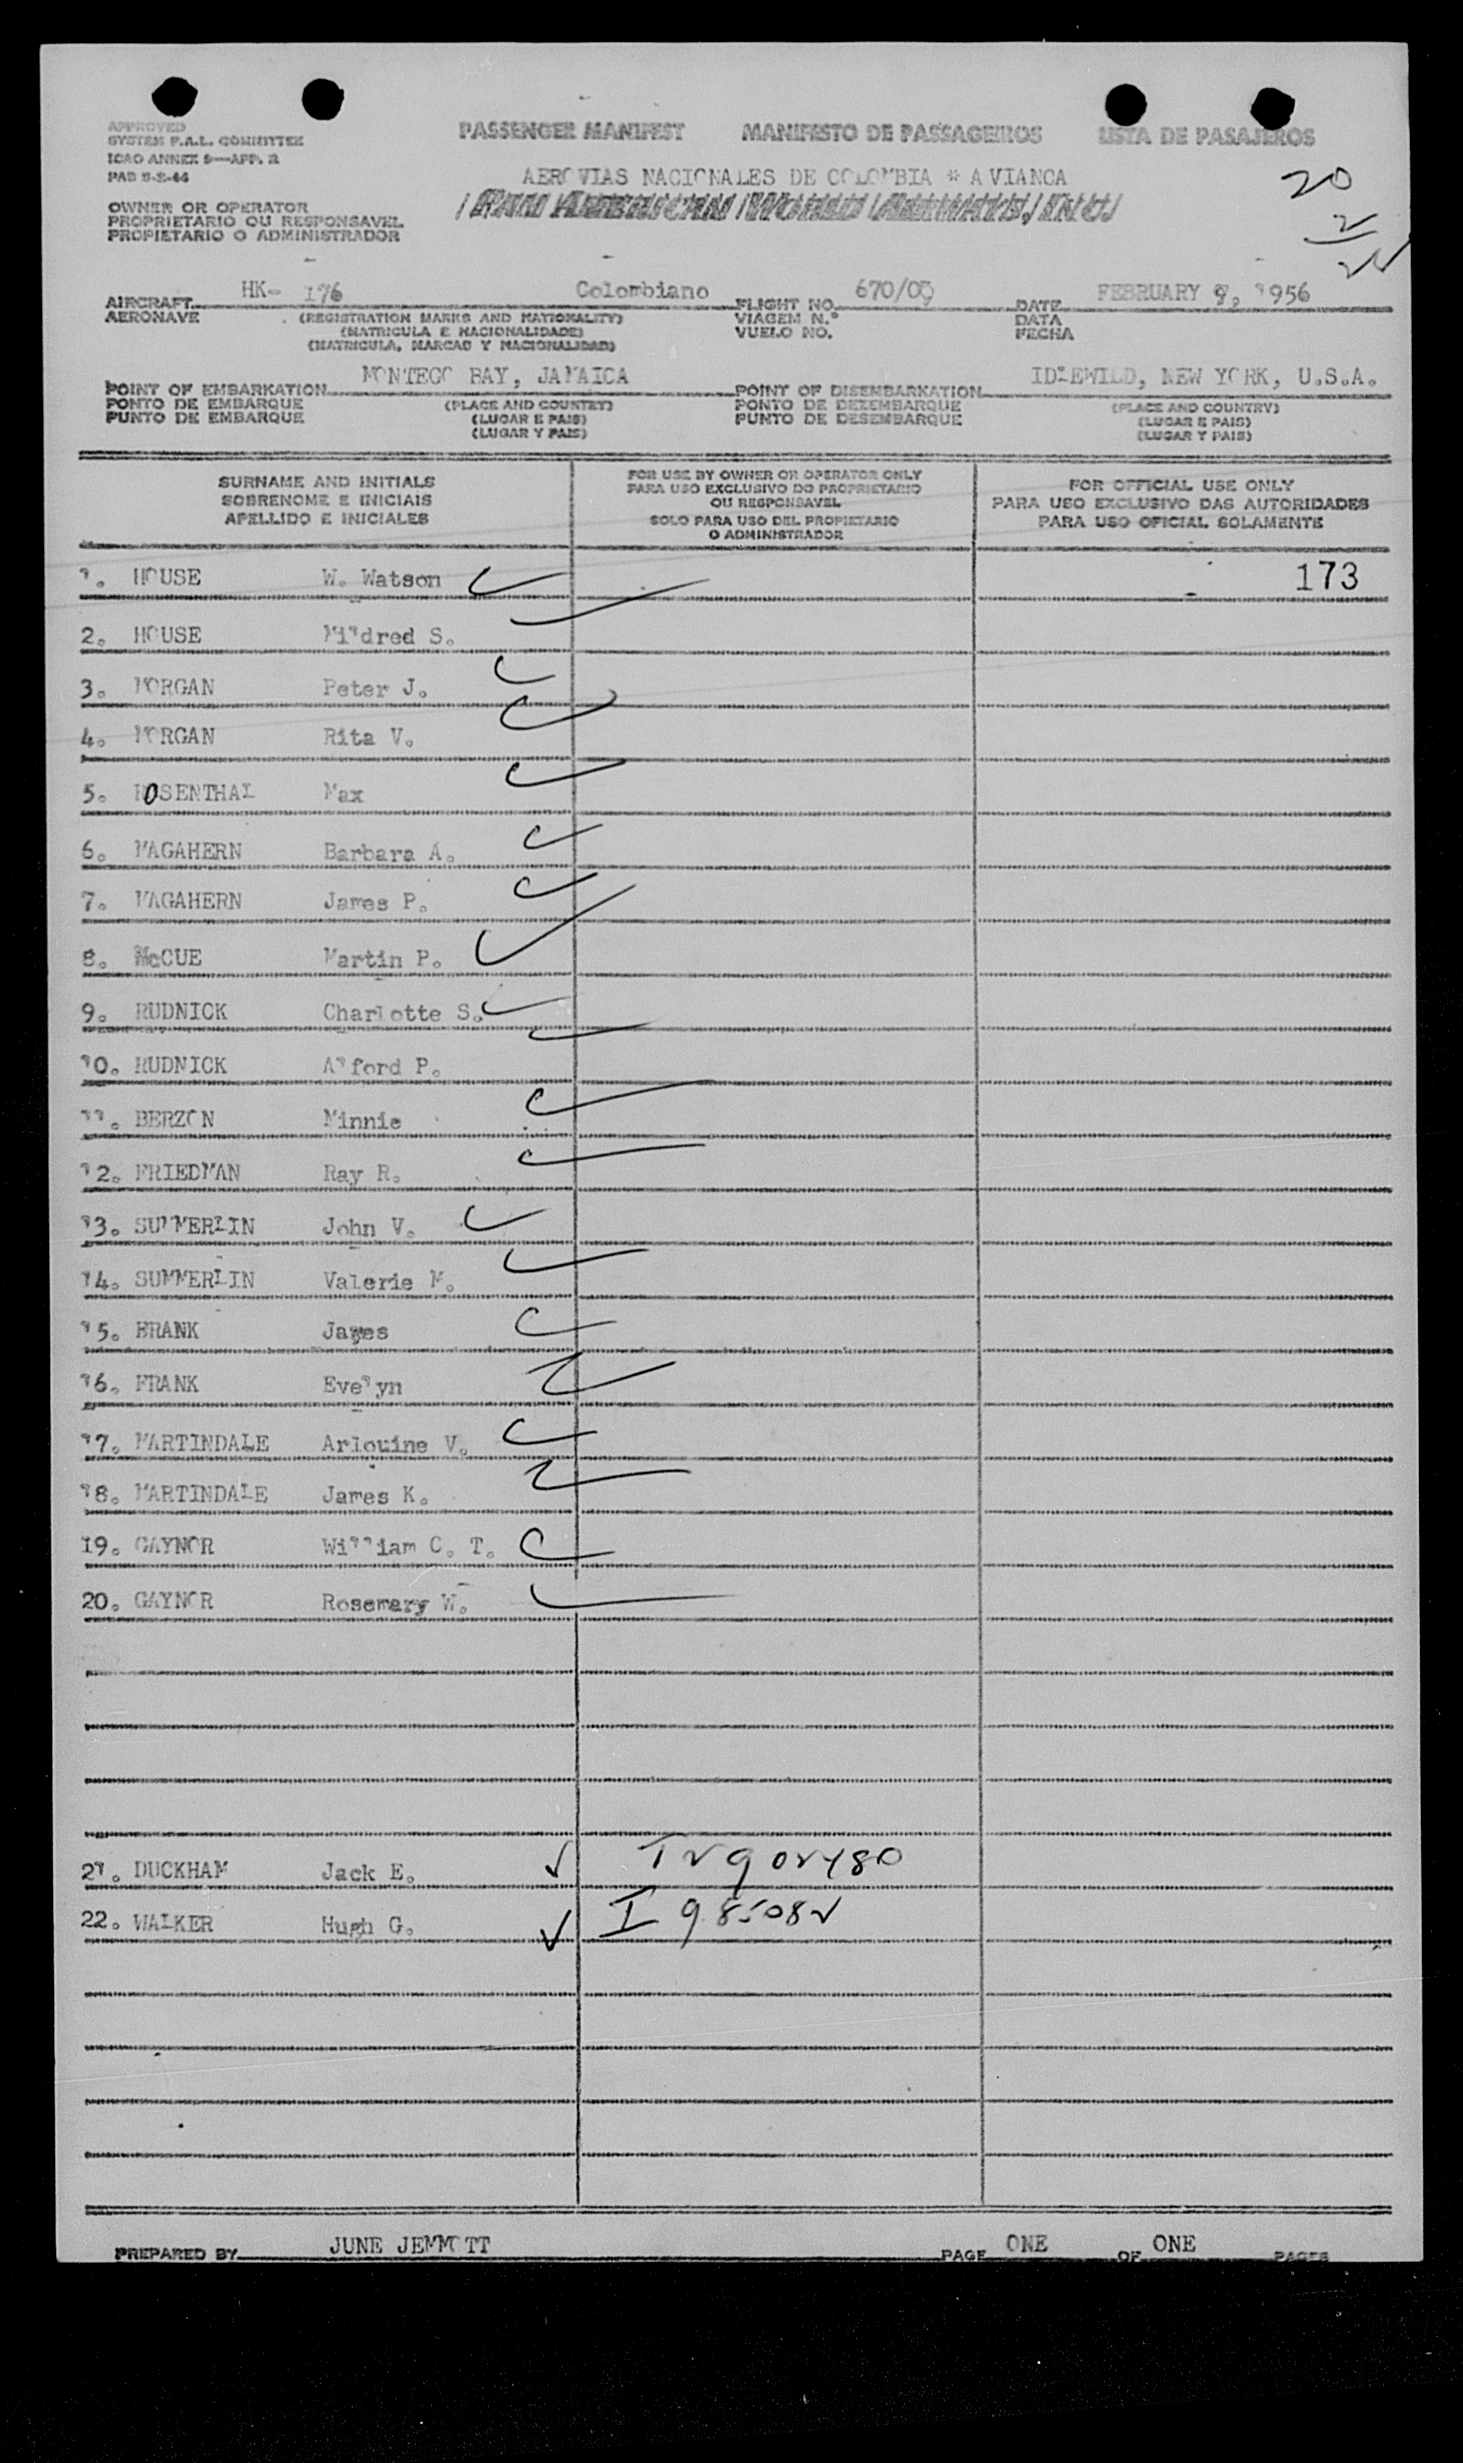 APPROVED
SYSTEM F.A.L. COMMITTEE
ICAO ANNEX 9—APP. 2
PASSENGER MANIFEST MANIFESTO DE PASSAGEIROS LISTA DE PASAJEROS
AEROVIAS NACIONALES DE COLOMBIA * AVIANCA
20
2
OWNER OR OPERATOR
PROPRIETARIO OU RESPONSAVEL
PROPIETARIO O ADMINISTRADOR
AIRCRAFT HK- 176 Colombiano FLIGHT NO. 670/09 DATE FEBRUARY 9, 1956
AERONAVE (REGISTRATION MARKS AND NATIONALITY) VIAGEM N.º DATA
(MATRICULA E NACIONALIDADE) VUELO NO. FECHA
(MATRICULA, MARCAS Y NACIONALIDAD)
POINT OF EMBARKATION MONTEGO BAY, JAMAICA POINT OF DISEMBARKATION IDLEWILD, NEW YORK, U.S.A.
PONTO DE EMBARQUE (PLACE AND COUNTRY) PONTO DE DEZEMBARQUE (PLACE AND COUNTRY)
PUNTO DE EMBARQUE (LUGAR E PAIS) PUNTO DE DESEMBARQUE (LUGAR E PAIS)
(LUGAR Y PAIS) (LUGAR Y PAIS)
SURNAME AND INITIALS
SOBRENOME E INICIAIS
APELLIDO E INICIALES
FOR USE BY OWNER OR OPERATOR ONLY
PARA USO EXCLUSIVO DO PROPRIETARIO
OU RESPONSAVEL
SOLO PARA USO DEL PROPIETARIO
O ADMINISTRADOR
FOR OFFICIAL USE ONLY
PARA USO EXCLUSIVO DAS AUTORIDADES
PARA USO OFICIAL SOLAMENTE
1. HOUSE W. Watson 173
2. HOUSE Mildred S.
3. MORGAN Peter J.
4. MORGAN Rita V.
5. ROSENTHAL Max
6. MAGAHERN Barbara A.
7. MAGAHERN James P.
8. McCUE Martin P.
9. RUDNICK Charlotte S.
10. RUDNICK Alford P.
11. BERZON Minnie
12. FRIEDMAN Ray R.
13. SUMMERLIN John V.
14. SUMMERLIN Valerie M.
15. FRANK James
16. FRANK Evelyn
17. MARTINDALE Arlouine V.
18. MARTINDALE James K.
19. GAYNOR William C. T.
20. GAYNOR Rosemary W.
21. DUCKHAM Jack E.
22. WALKER Hugh G. I 985082
PREPARED BY JUNE JEMMOTT PAGE ONE OF ONE PAGES